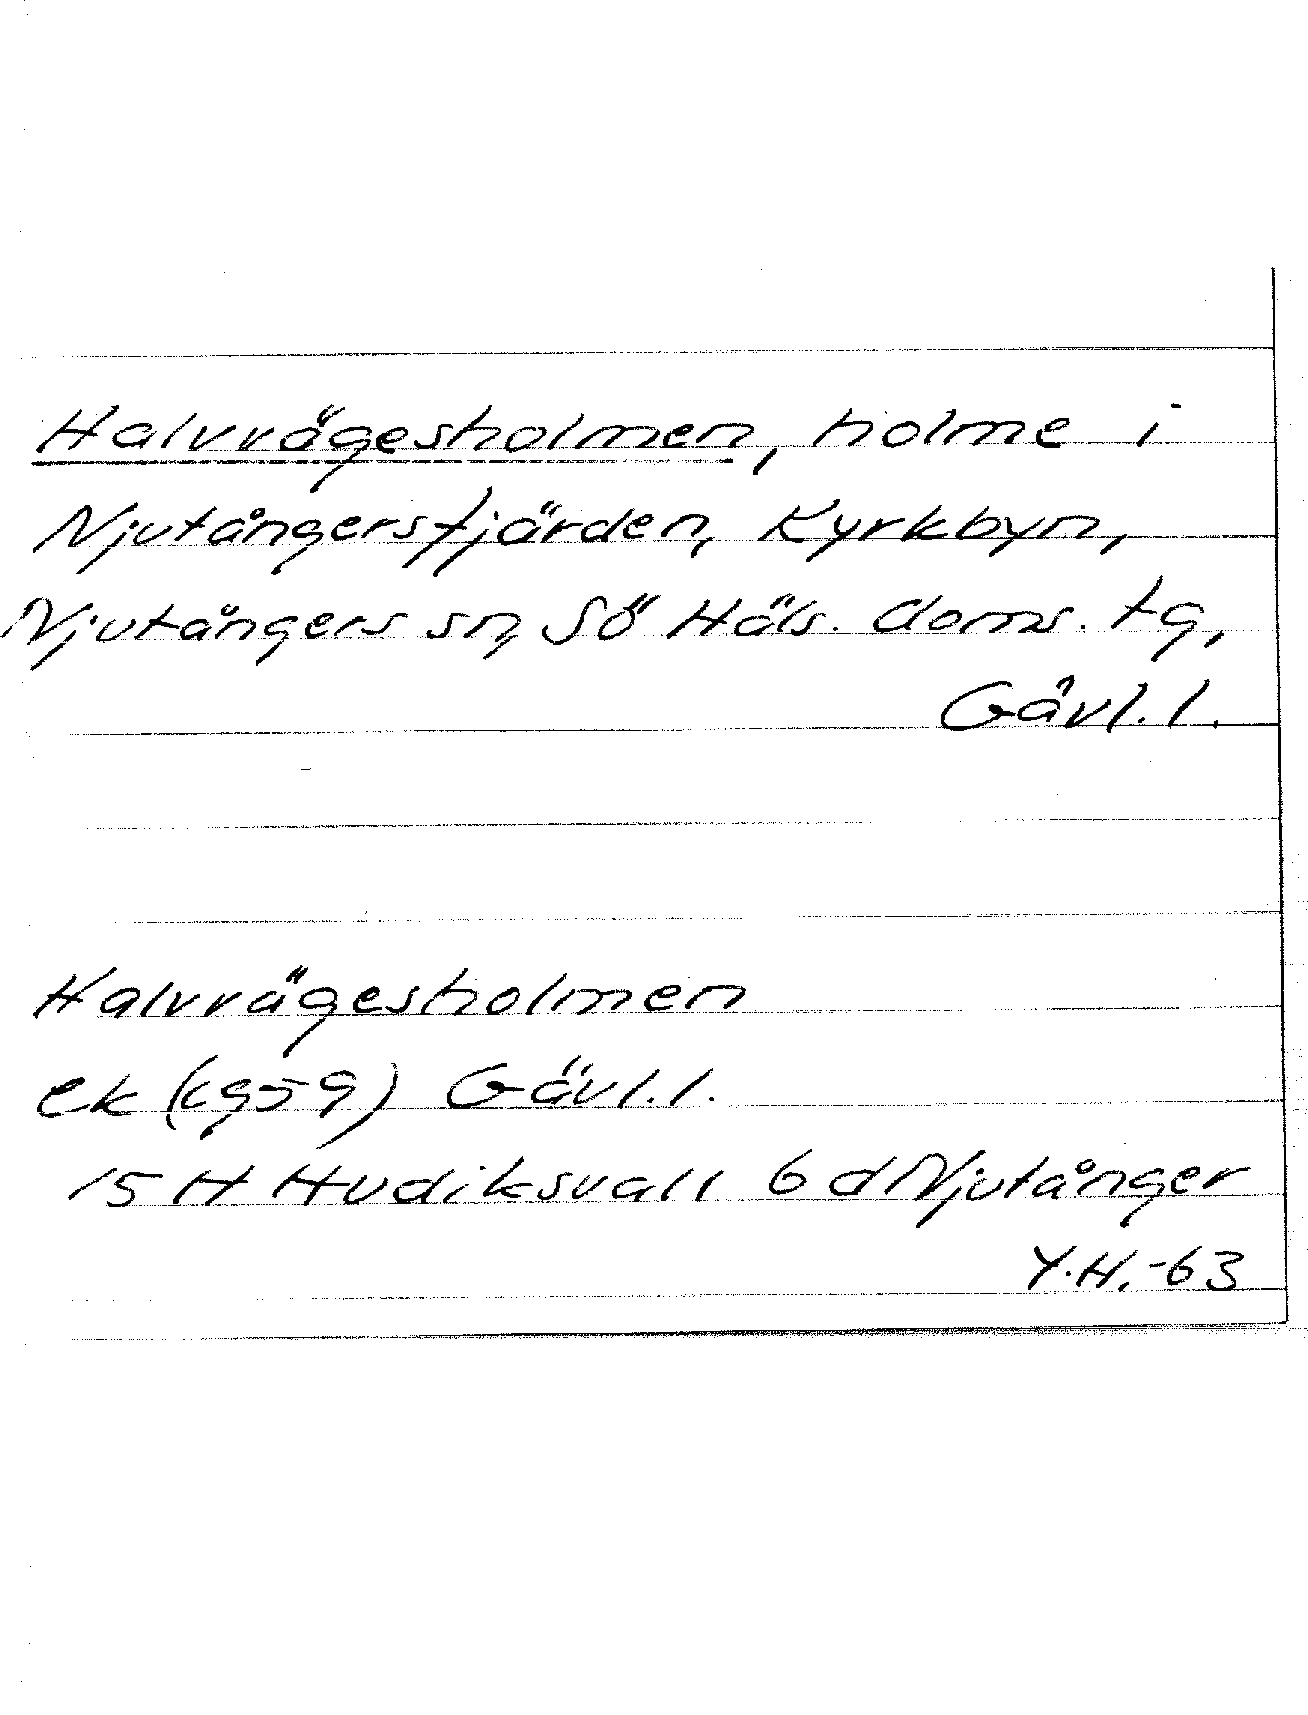 Halvvägesholmen, holme i
Njutångersfjärden, Kyrkbyn,
Njutångers sn, Sö Häls. doms. tg,
Gävl. l.
Halvvägesholmen
ek (kg59) Gävl. l.
15 H Hudiksvall 6 d Njutånger
Y.H.-63